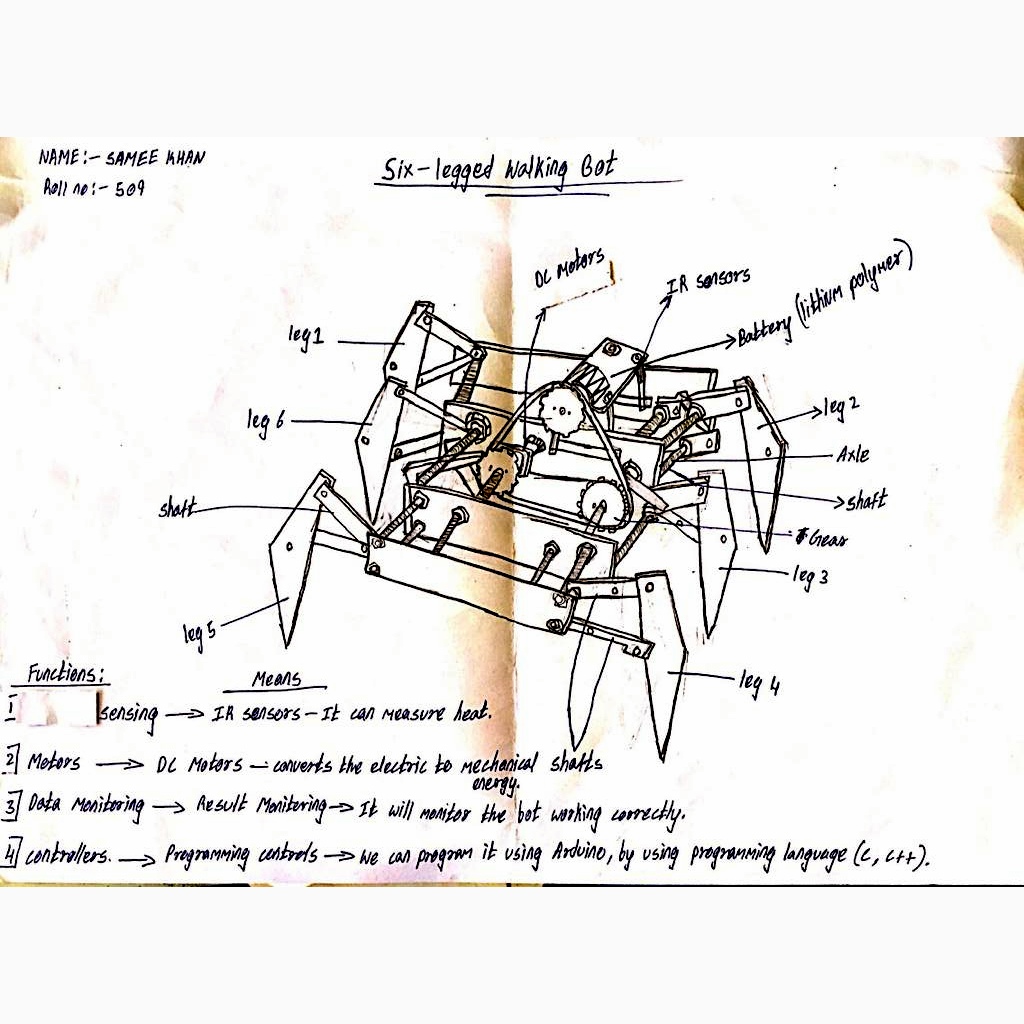 NAME:- SAMEE KHAN
Roll no:- 509
Six-legged Walking Bot
DC Motors
IR sensors
Battery (lithium polymer)
leg 1
leg 2
leg 6
Axle
shaft
shaft
Gear
leg 3
leg 5
leg 4
Functions:
Means
1] sensing → IR sensors - It can measure heat.
2] Motors → DC Motors - converts the electric to mechanical shafts
energy.
3] Data Monitoring → Result Monitoring → It will monitor the bot working correctly.
4] controllers. → Programming controls → We can program it using Arduino, by using programming language (C, C++).